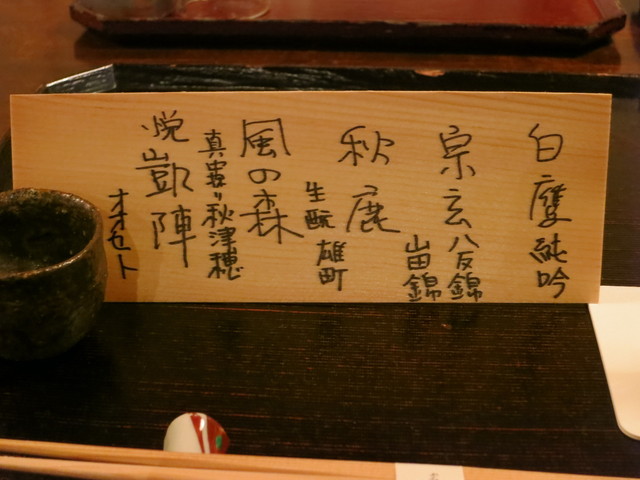 白鷹純吟
宗玄八反錦
山田錦
秋鹿
生酛雄町
風の森
秋津穂
悦凱陣
オオセト